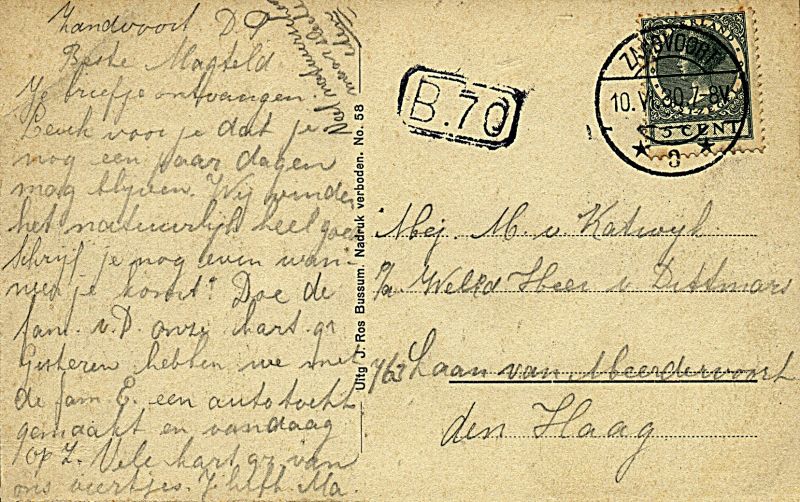 Zandvoort D.
Beste Magteld
Je briefje ontvangen.
Leuk voor je dat je
nog een paar dagen
mag blijven. Wij vinden
het natuurlijk heel goed
Schrijf je nog even wan-
neer je komt? Doe de
fam. v. D onze hart. gr
Gisteren hebben we met
de fam E. een autotocht
gemaakt en vandaag
op Z. Vele hart gr van
ons viertjes. J hefh Ma.
Veel
Uitg J. Ros Bussum. Nadruk verboden. No. 58
B.70
ZANDVOORT
10.VI.30.7-8V
3
NEDERLAND
5 CENT
Mej. M. v Katwyk.
p/a Weled Heer v Dittmars
763 Laan van Meerdervoort
den Haag